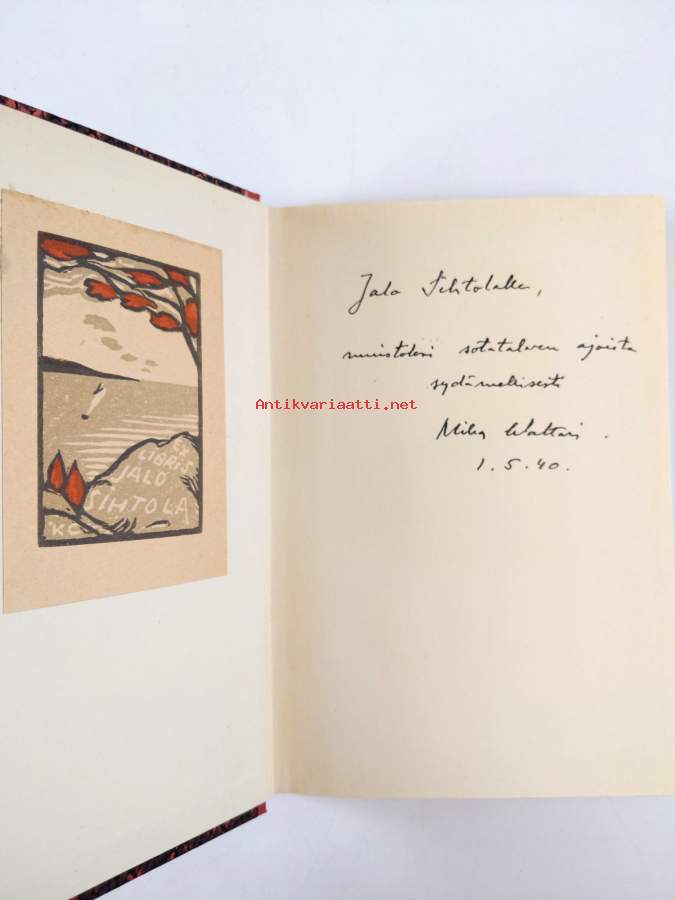 EX
LIBRIS
JALO
SIHTOLA
KC
Jalo Sihtolalle,
muistoksi sotatalven ajoista
sydämellisesti
Mika Waltari.
1.5.40.
Antikvariaatti.net